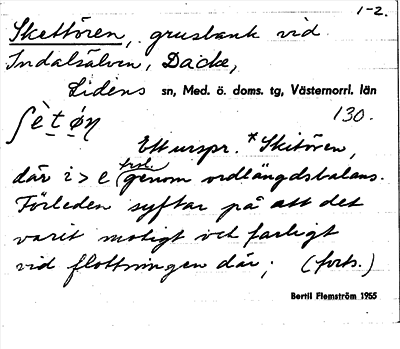 1-2.
Skettören, grusbank vid
Indalsälven, Dacke,
Lidens sn, Med. ö. doms. tg, Västernorrl. län
130.
Ett urspr. *Skitören,
där i > e genom ordlängdsbalans.
Förleden syftar på att det
varit motigt och farligt
vid flottningen där; (forts.)
Bertil Flemström 1955